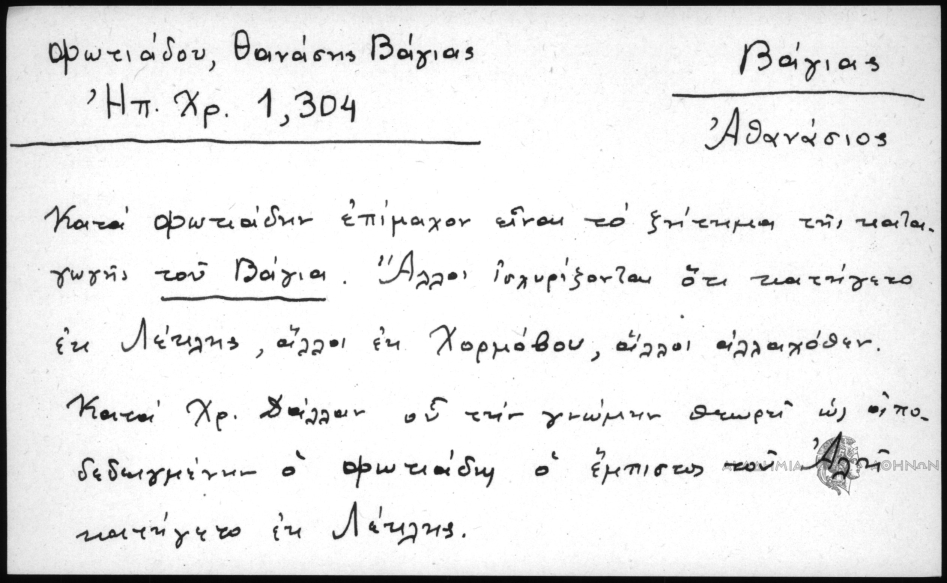 Φωτιάδου, Θανάσης Βάγιας
Ἠπ. Χρ. 1,304
Βάγιας
Ἀθανάσιος
Κατά Φωτιάδην ἐπίμαχον εἶναι τό ζήτημα τῆς κατα-
γωγῆς τοῦ Βάγια. Ἄλλοι ἰσχυρίζονται ὅτι κατήγετο
ἐκ Λέκλης, ἄλλοι ἐκ Χορμόβου, ἄλλοι ἀλλαχόθεν.
Κατά Χρ. Δάλλαν οὗ τήν γνώμην θεωρεῖ ὡς ἀπο-
δεδειγμένην ὁ Φωτιάδης ὁ ἔμπιστος τοῦ Ἀλῆ
κατήγετο ἐκ Λέκλης.
ΑΚΑΔΗΜΙΑ ΑΘΗΝΩΝ